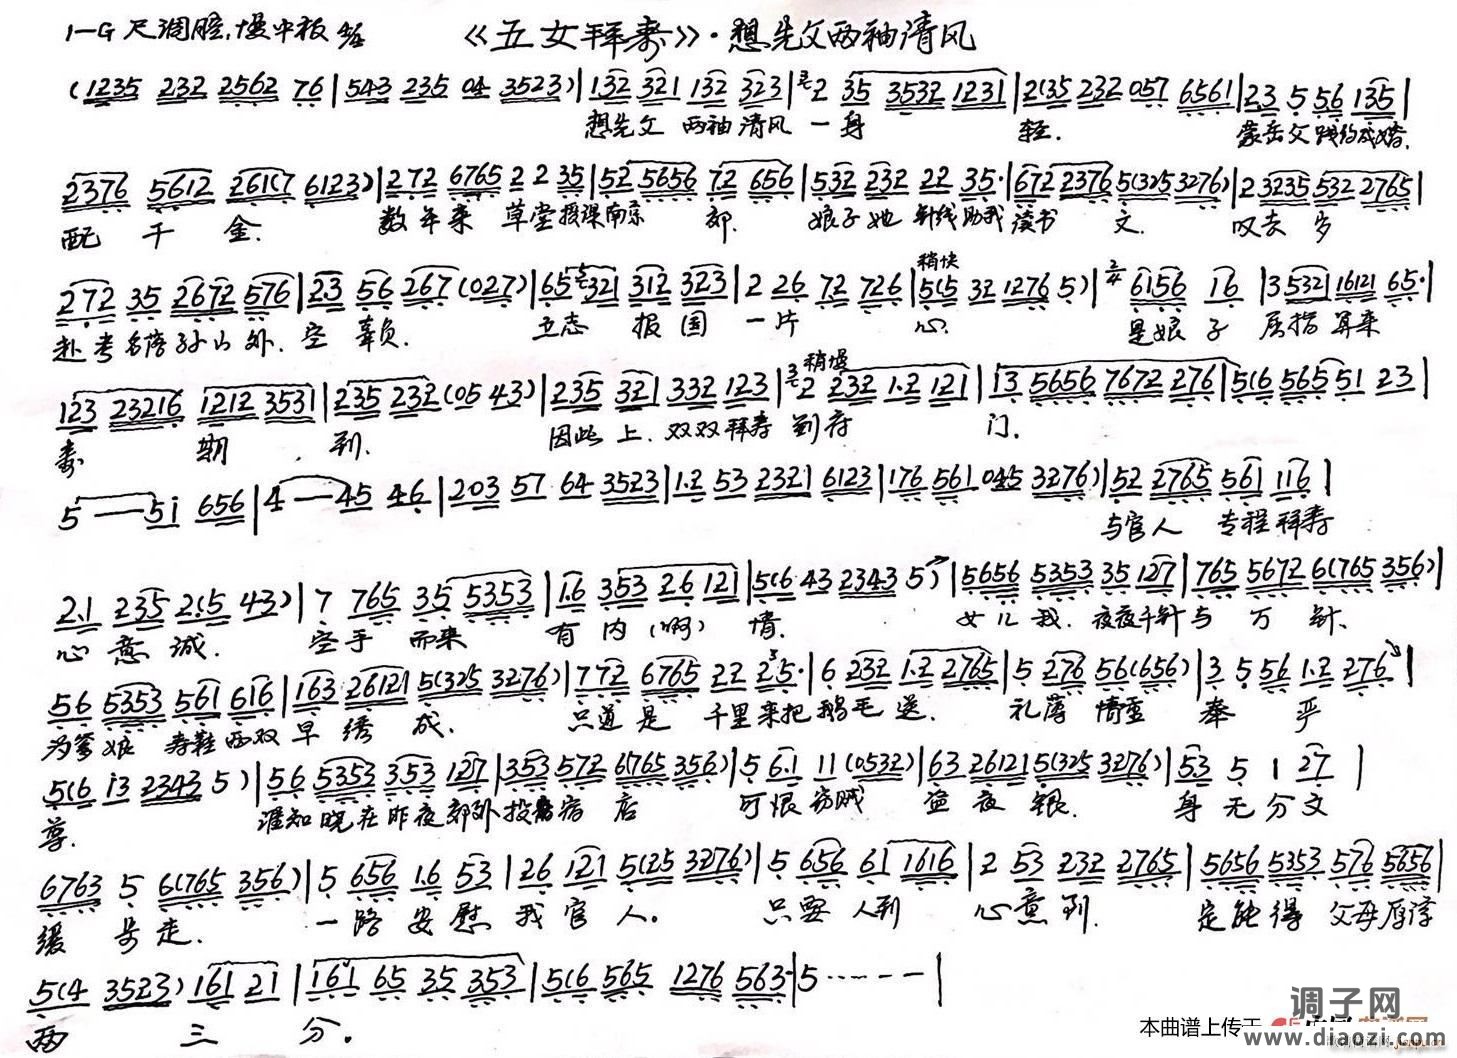 1=G 尺调腔.慢中板 4/4 《五女拜寿》·想先父两袖清风
(1235 232 2562 76|543 235 04 3523)|132 321 132 323|2 35 3532 1231|2(35 232 057 6561|23 5 56 135|
想先父 两袖清风 一身 轻. 蒙岳父践约成婚.
2376 5612 261(7 6123)|272 6765 2 2 35|52 5656 72 656|532 232 22 35·|672 2376 5(325 3276)|2 3235 532 2765|
配 千 金. 数年来 草堂授课南京 郊. 娘子她 针线助我读书 文. 叹去岁
272 35 2672 576|23 56 267(027)|65 321 312 323|2 26 72 726|稍快 5(5 32 1276 5)|2/4 6156 16|3532 16121 65·|
赴考名落孙山外. 空 辜负. 立志 报国 一片 心. 是娘子 屈指算来
123 23216 1212 3531|235 232(05 43)|235 321 332 123|稍慢 2 232 1·2 121|13 5656 7672 276|5(6 565 51 23|
寿 期 到. 因此上.双双拜寿 到府 门.
5——5i 656|4——45 46|203 57 64 3523|1·2 53 2321 6123|176 561 045 3276)|52 2765 561 116|
与官人 专程拜寿
2·1 235 2(5 43)|7 765 35 5353|1·6 353 26 121|5(6 43 2343 5)|5656 5353 35 127|765 5672 6(765 356)|
心意诚. 空手 而来 有内(啊) 情. 女儿我.夜夜千针与 万 针、
56 5353 561 616|163 26121 5(325 3276)|772 6765 22 2·5·|6 232 1·2 2765|5 276 56(656)|3 5 56 1·2 276|
为爹娘 寿鞋两双早 绣 成. 只道是 千里来把鹅毛送. 礼薄 情重 奉 严
5(6 i3 2343 5)|56 5353 353 127|353 572 6(765 356)|5 6·1 11(0532)|63 26121 5(325 3276)|53 5 1 27|
尊. 谁知晓在昨夜郊外投宿 店 可恨窃贼 盗夜 银. 身无分文
6763 5 6(765 356)|5 656 1·6 53|26 121 5(25 3276)|5 656 61 1616|2 53 232 2765|5656 5353 576 5656|
缓 步走. 一路安慰 我官 人. 只要 人到 心意到. 定能得 父母厚谆
5(4 3523)161 21|161 65 35 353|5(6 565 1276 563·|5······—|
两 三 分.
本曲谱上传于
调子网
www.diaozi.com